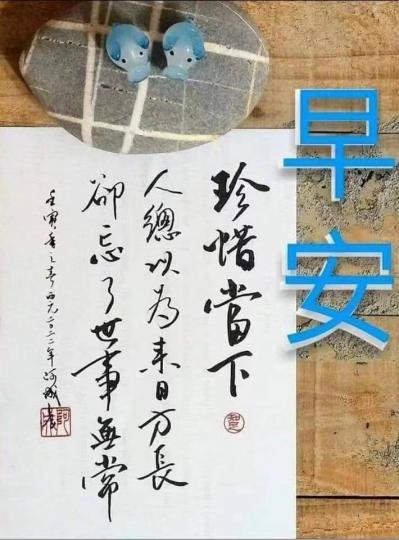 早安
珍惜當下
人總以為来日方長
卻忘了世事無常
壬寅年之春西元二〇二二年